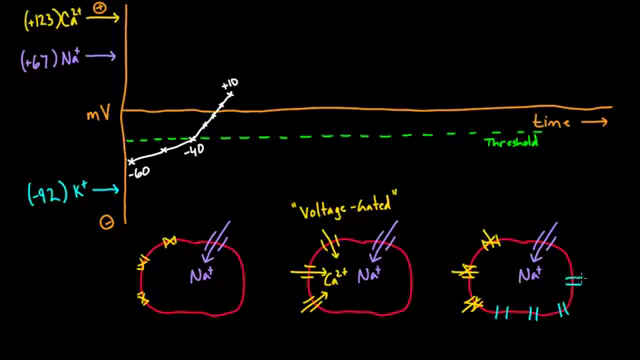 (+123) Ca²⁺ → ⊕
(+67) Na⁺ →
+10
mV
time →
-40
Threshold
-60
(-92) K⁺ →
⊖
"Voltage-Gated"
Na⁺
Ca²⁺
Na⁺
Na⁺